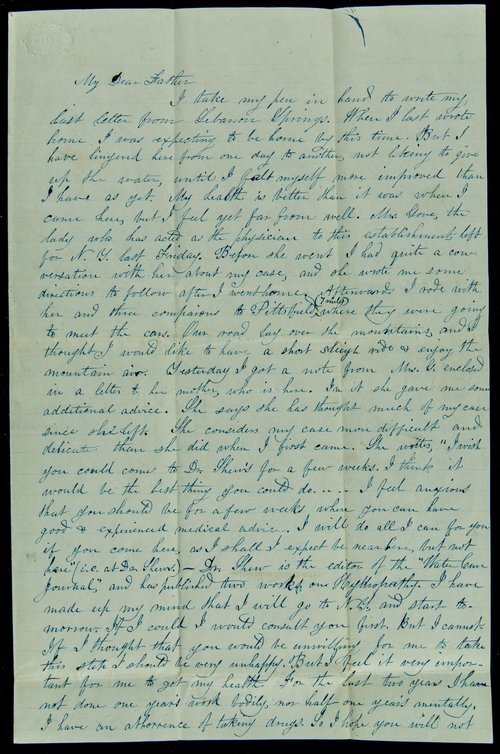 My Dear Father
I take my pen in hand to write my
last letter from Lebanon Springs. When I last wrote
home I was expecting to be home by this time. But I
have lingered here from one day to another, not liking to give
up the water, until I felt myself more improved than
I have as yet. My health is better than it was when I
came here, but I feel yet far from well. Mrs. Gove, the
lady who has acted as the physician to this establishment left
for N. Y. last Friday. Before she went I had quite a con-
versation with her about my case, and she wrote me some
directions to follow after I went home. Afterwards I rode with
her and three companions to Pittsfield where they were going
to meet the cars. Our road lay over the mountains, and I
thought I would like to have a short sleigh ride & enjoy the
mountain air. Yesterday I got a note from Mrs. G. enclosed
in a letter to her mother, who is here. In it she gave me some
additional advice. She says she has thought much of my case
since she left. She considers my case more difficult and
delicate than she did when I first came. She writes, "I wish
you could come to Dr Shew's for a few weeks. I think it
would be the best thing you could do. . . . . I feel anxious
that you should be for a few weeks where you can have
good & experienced medical advice. I will do all I can for you
if you come here, as I shall I expect be near here, but not
here" (i.e. at Dr. Shew's.) — Dr. Shew is the editor of the "Water Cure
Journal", and has published two works on Hydropathy. I have
made up my mind that I will go to N. Y. and start to-
morrow. If I could I would consult you first. But I cannot.
If I thought that you would be unwilling for me to take
this step I should be very unhappy. But I feel it very impor-
tant for me to get my health. For the last two years I have
not done one year's work bodily, nor half one year's mentally.
I have an abhorrence of taking drugs. So I hope you will not